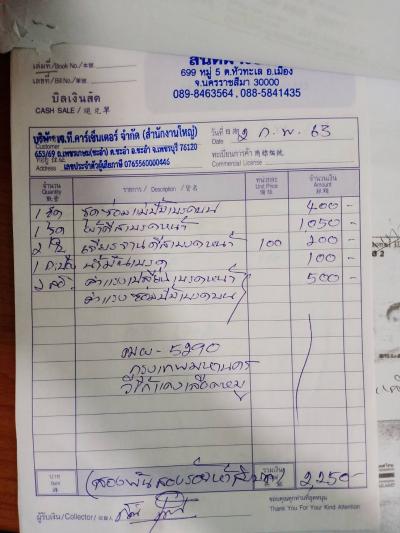 699 หมู่ 5 ต.หัวทะเล อ.เมือง
จ.นครราชสีมา 30000
089-8463564 , 088-5841435
เล่มที่/Book No./
เลขที่/Bill No./
บิลเงินสด
CASH SALE /
วันที่
Date
12 ก.พ. 63
คาร์เซ็นเตอร์ จำกัด (สำนักงานใหญ่)
Customer
จ.เพชรบุรี 76120
เลขประจำตัวผู้เสียภาษี 0765560000446
Address
ทะเบียนการค้า
Commercial License
จำนวน
Quantity
รายการ / Description /
หน่วยละ
Unit Price
จำนวนเงิน
Amount
1 ชุด ชุดซ่อมแม่ปั๊มเบรคบน 400 -
1 ชุด ผ้าดิสเบรคหน้า 1,050 -
2 ใบ เจียรจานดิสเบรคหน้า 100 200 -
น้ำมันเบรค 100 -
ค่าแรงเปลี่ยนเบรคหน้า 500 -
ค่าแรงซ่อมปั๊มเบรคบน
5290
กรุงเทพมหานคร
วีโก้แดงเลือดหมู
บาท
Baht
(สองพันสองร้อยห้าสิบบาท)
รวมเงิน
2,250 -
ผู้รับเงิน/Collector/
ขอบคุณทุกท่านที่อุดหนุน
Thank You For Your Kind Attention